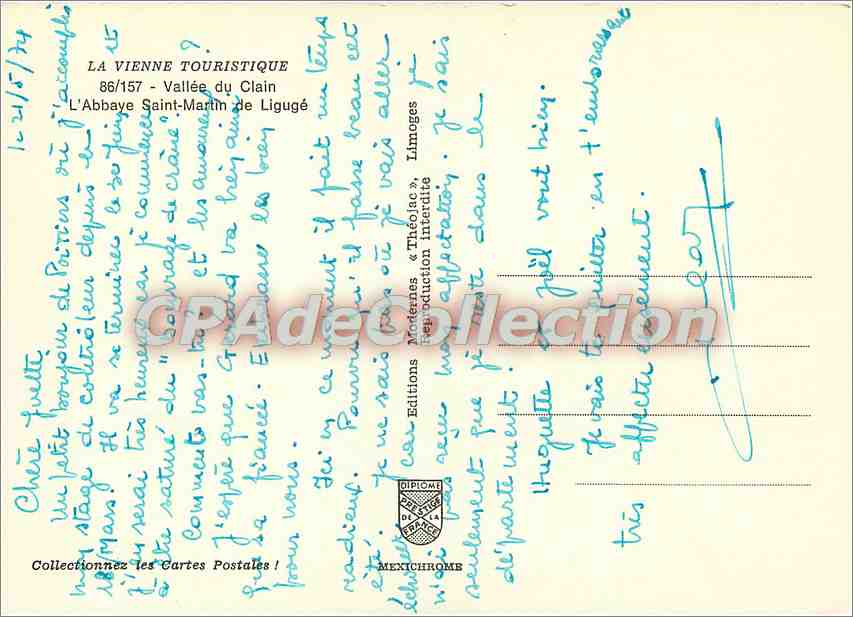 LA VIENNE TOURISTIQUE
86/157 - Vallée du Clain
L'Abbaye Saint-Martin de Ligugé
Editions Modernes « Théojac », Limoges
Reproduction interdite
DIPLOME
PRESTIGE
DE LA
FRANCE
MEXICHROME
Collectionnez les Cartes Postales !
CPAdeCollection
21/5/74
Chère Yvette
Un petit bonjour de Poitiers où j'accomplis
mon stage de contrôleur depuis le
18 Mars. Il va se terminer le 30 Juin et
j'en serai très heureux car je commence
à être saturé du "bourrage de crâne".
Comment vas-tu et les amours ?
J'espère que Gérard va bien ainsi
que sa fiancé. Embrasse les bien
pour nous.
Ici en ce moment il fait un temps
radieux. Pourvu qu'il fasse beau cet
été. Je ne sais pas où je vais aller
échouer car je
n'ai pas reçu mon affectation. Je sais
seulement que je reste dans le
département.
Huguette et Joël vont bien.
Je vais te quitter en t'embrassant
très affectueusement.